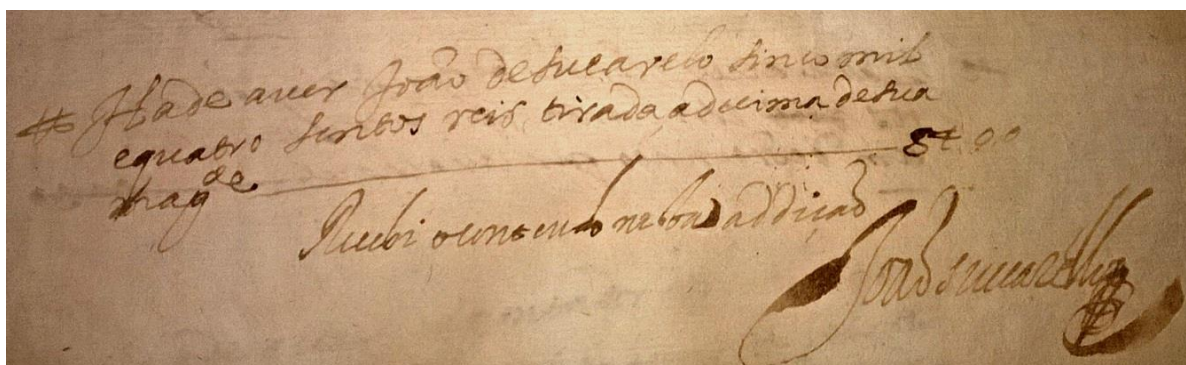 # Hade aver João desucarelo sinco mil
equatro sentos reis tirada adecima desua
magde 5400
Recebi oconteudo nesta addição
João succarelly